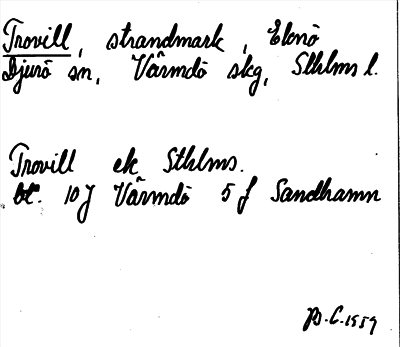 Trovill, strandmark, Eknö
Djurö sn, Värmdö skg, Sthlms l.
Trovill ek Sthlms.
bl. 10J Värmdö 5 f Sandhamn
B.C. 1959